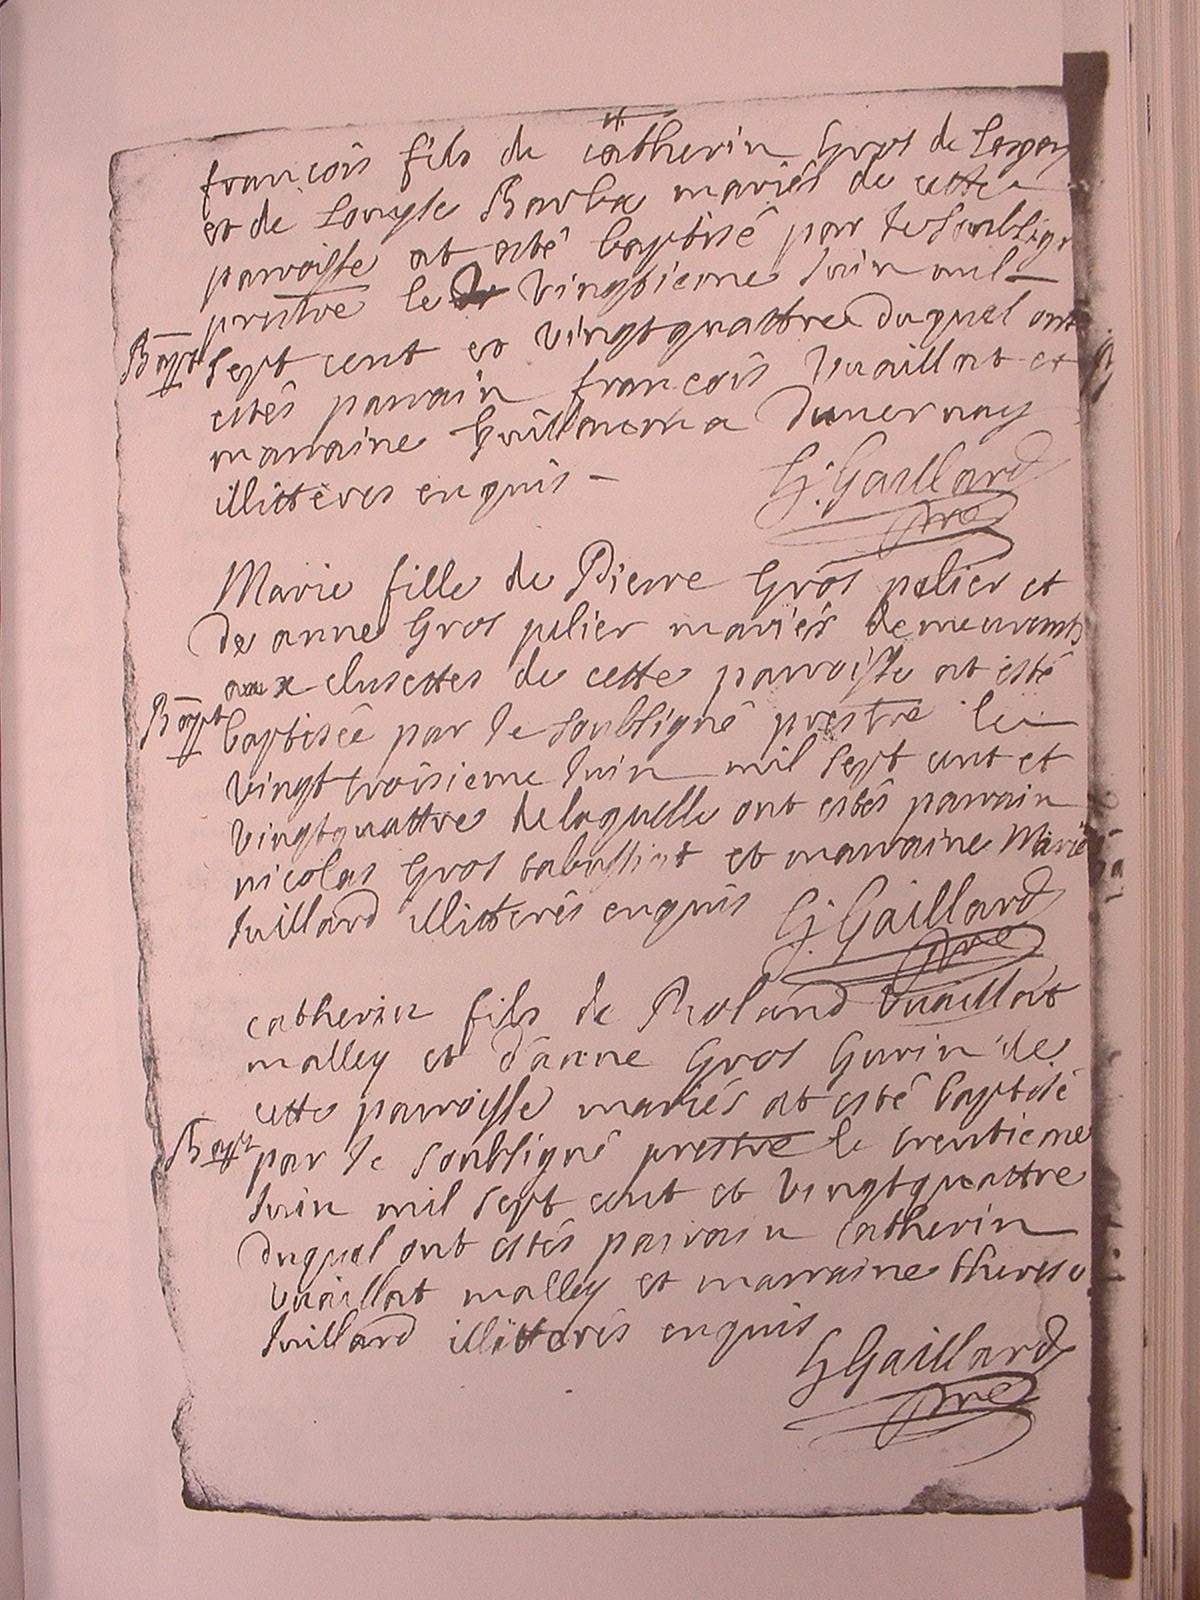 françois fils de catherin Gros de
et de Louyse Barba mariés de cette
parroisse at esté baptisé par le soubsigné
prestre le vingtieme Juin mil
Bapt sept cent et vingtquattre duquel ont
estés parrain françois Vuaillat et
marraine Guillauma Duvernay
illitterés enquis
G. Gaillard
pre
Marie fille de Pierre Gros pelier et
de anne Gros pelier mariés demeurants
aux clusettes de cette parroisse at esté
Bapt baptisée par le soubsigné prestre le
vingt troisieme Juin mil sept cent et
vingtquattre de laquelle ont estés parrain
nicolas Gros et marraine Marie
Juillard illitterés enquis
G. Gaillard
pre
catherin fils de Roland Vuaillat
malley et d'anne Gros Gurin de
cette parroisse mariés at esté baptisé
Bapt par le soubsigné prestre le trentieme
Juin mil sept cent et vingtquattre
duquel ont estés parrain catherin
vuaillat malley et marraine therese
Juillard illitterés enquis
G Gaillard
pre